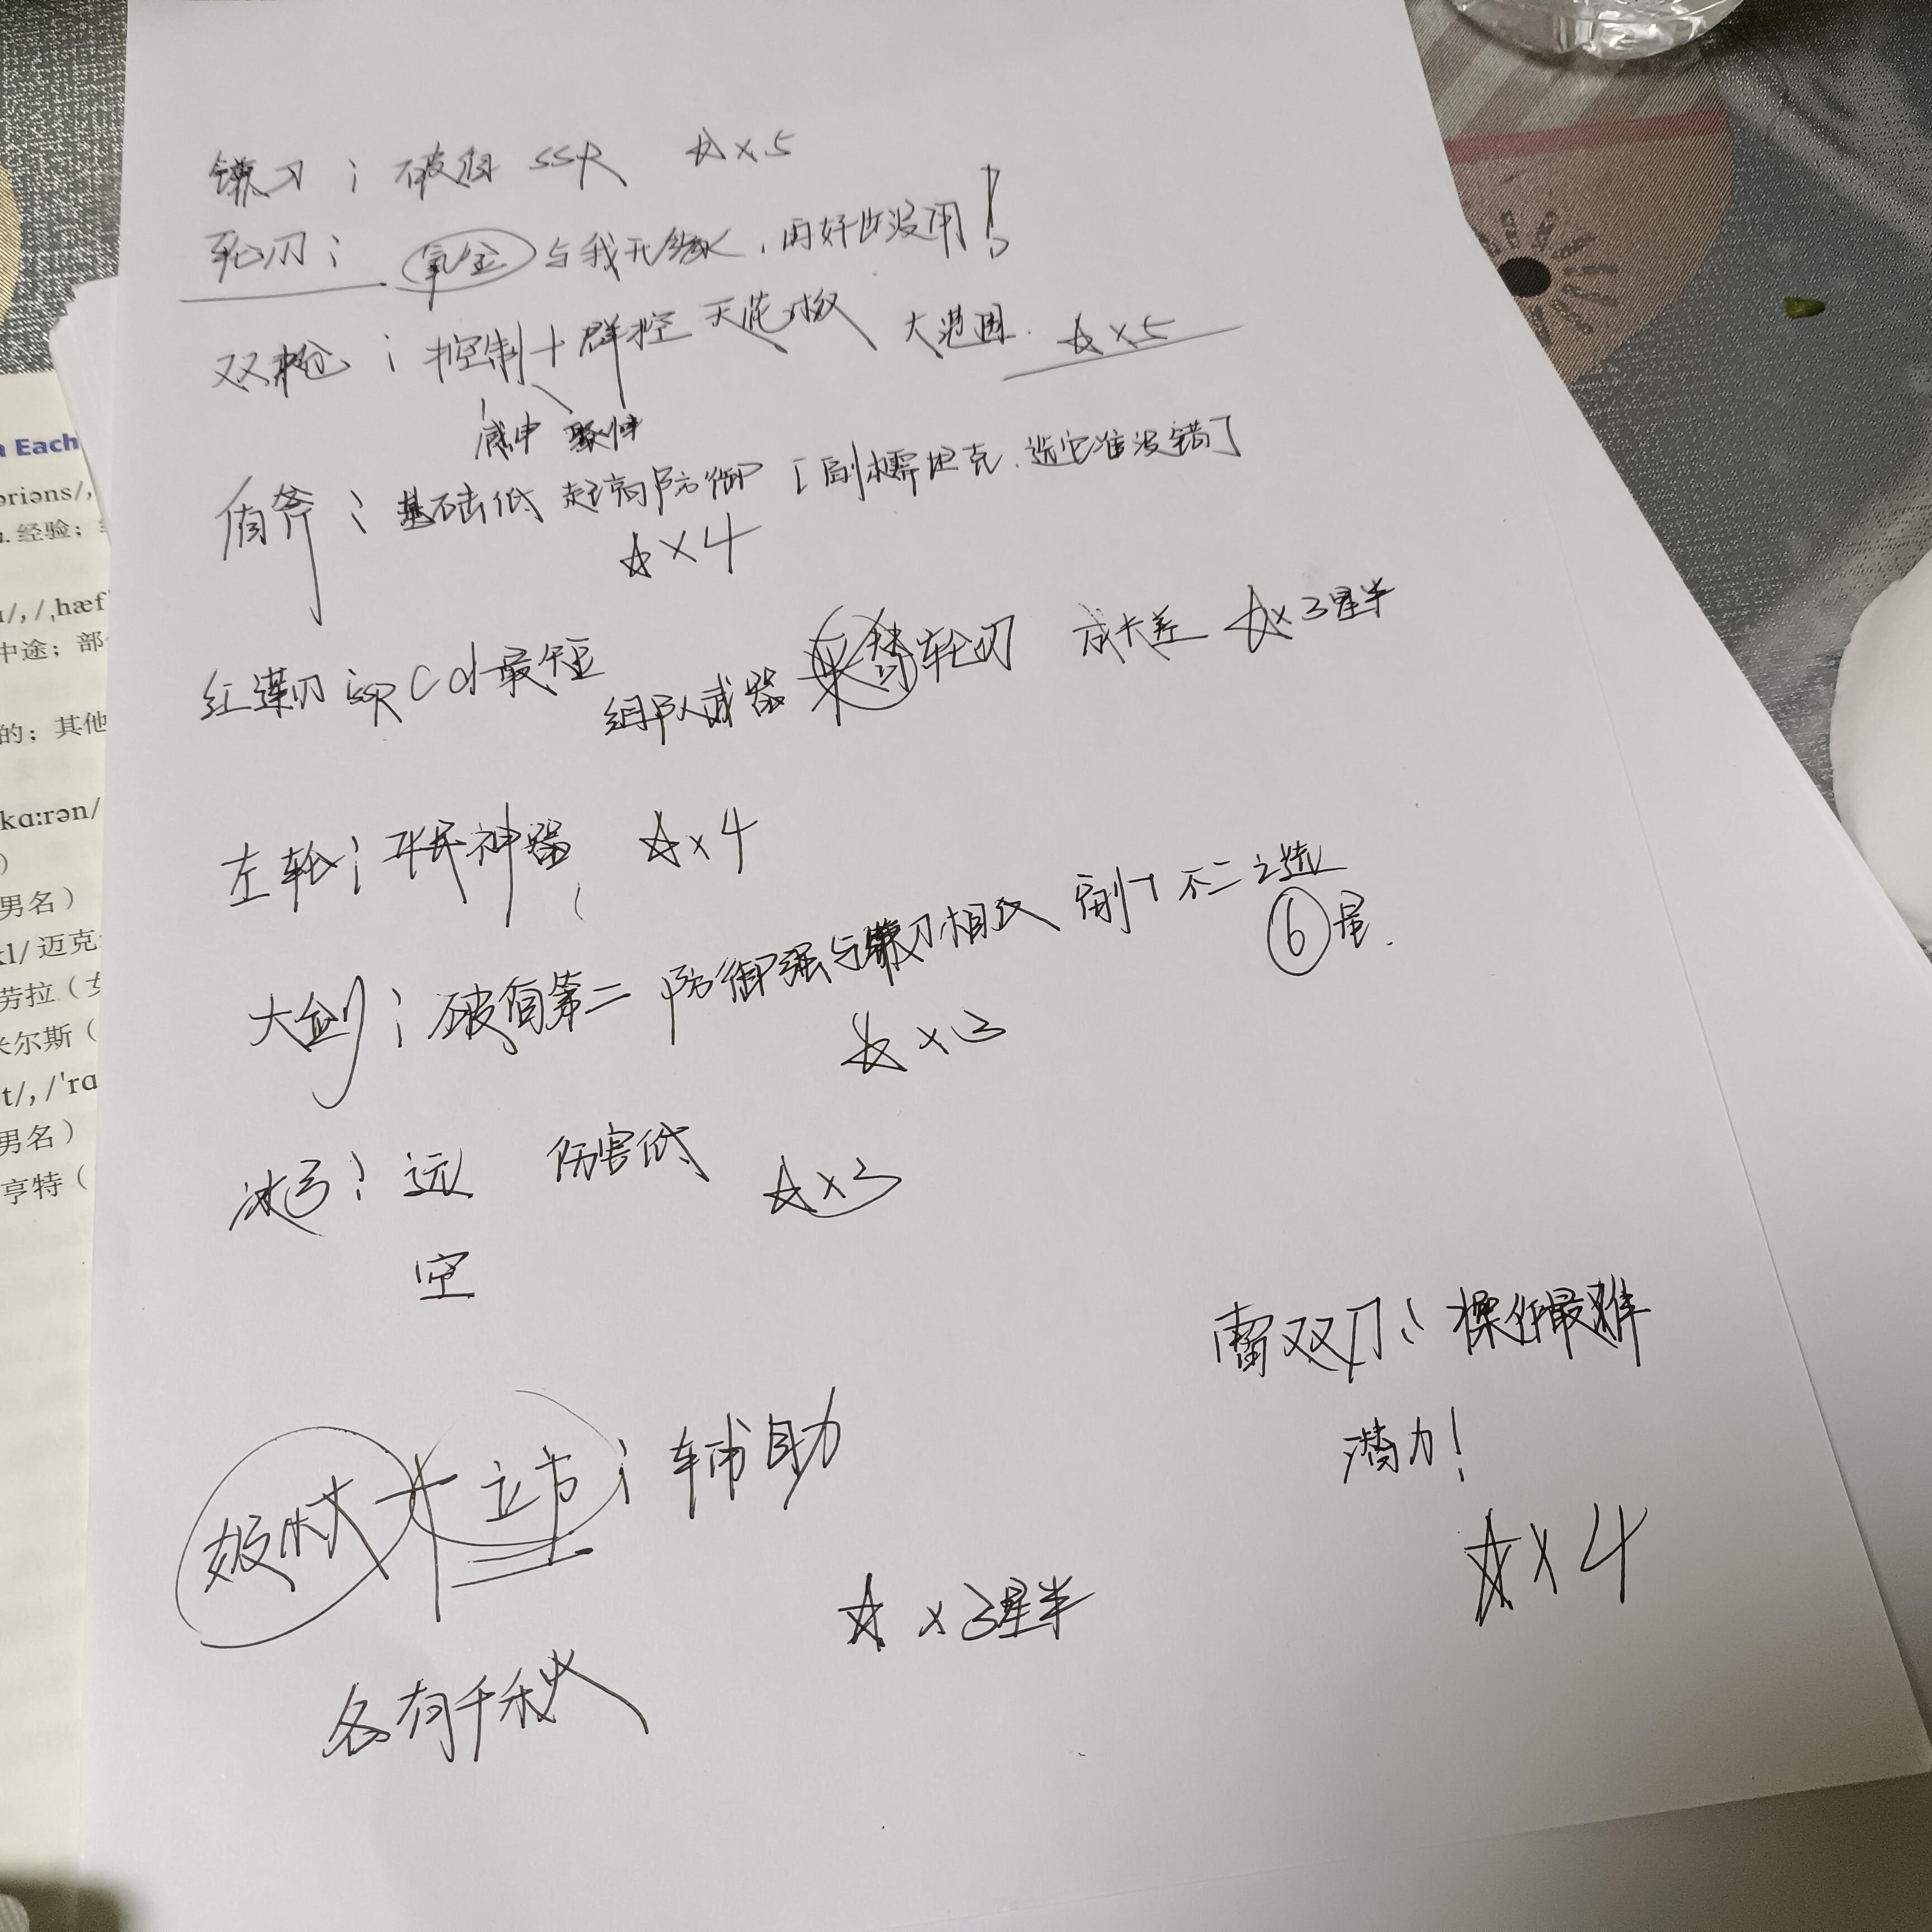 镰刀：破盾 SSR ☆×5
轮刃：氪金 与我无缘，再好也没用！
双枪：控制+群控 天花板 大范围. ☆×5
盾斧：基础击低 超高防御 副本需坦克，选它准没错了
☆×4
红莲刃 SSR Cd最短 组队武器 轮刃 成长差 ☆×3星半
左轮：平民神器 ☆×4
大剑：破盾第二 防御强与镰刀相反 副T 不二之选
⑥星.
☆×3
冰弓：远 伤害低 ☆×3
空
雷双刀：操作最难
潜力！
☆×4
权杖 + 立方：辅助
☆×3星半
各有千秋
n Each
əriəns/,
n. 经验；
/,/ˌhæf
中途；部
的；其他
kɑːrən/
）
男名）
kl/ 迈克
劳拉（女
米尔斯（
t/, /ˈrɑ
男名）
亨特（